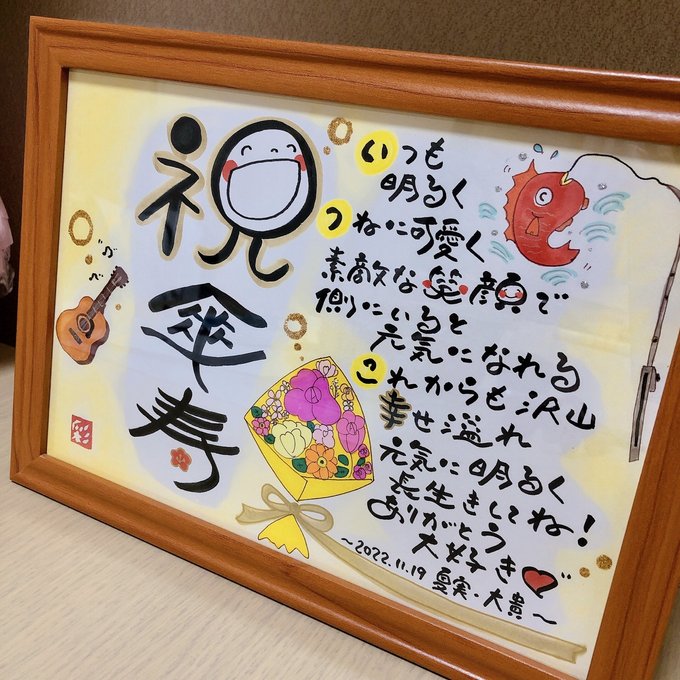 祝
傘
寿
いつも
明るく
つねに可愛く
素敵な笑顔で
側にいると
元気になれる
これからも沢山
幸せ溢れ
元気に明るく
長生きしてね!
ありがとう
大好き
〜2022.11.19 夏実・大貴〜